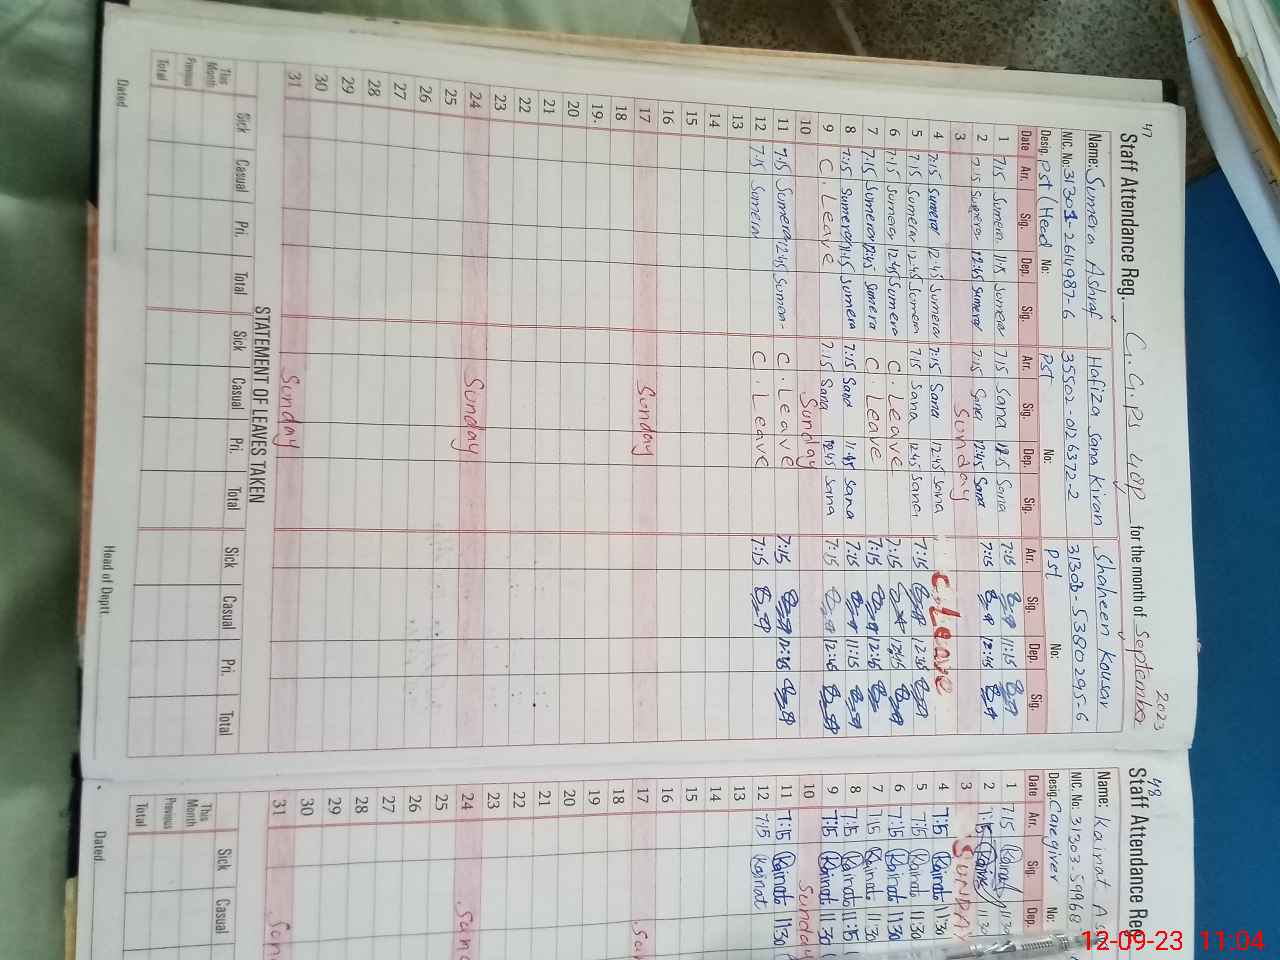 47
Staff Attendance Reg. G.G.PS 48P for the month of September 2023
Name: Sumera Ashraf Hafiza Sana Kiran Shaheen Kousar
NIC. No: 31303-2614987-6 35502-0126372-2 31303-5380295-6
Desig. Pst (Head No: Pst No: Pst No:
Date Arr. Sig. Dep. Sig. Arr. Sig. Dep. Sig. Arr. Sig. Dep. Sig.
1 7:15 Sumera 11:15 Sumera 7:15 Sana Sana 7:15 11:15
2 7:15 Sumera 12:45 Sumera 7:15 Sana 12:45 Sana 7:15 12:45
3 Sunday
4 7:15 Sumera 12:45 Sumera 7:15 Sana 12:45 Sana C. Leave
5 7:15 Sumera 12:45 Sumera 7:15 Sana 12:45 Sana 7:15 12:45
6 7:15 Sumera 12:45 Sumera C. Leave 7:15 12:45
7 7:15 Sumera 12:45 Sumera C. Leave 7:15 12:45
8 7:15 Sumera 11:15 Sumera 7:15 Sana Sana 7:15 11:15
9 C. Leave 7:15 Sana 12:45 Sana 7:15 12:45
10 Sunday
11 7:15 Sumera 12:45 Sumera C. Leave 7:15 12:45
12 7:15 Sumera C. Leave 7:15
13
14
15
16
17 Sunday
18
19.
20
21
22
23
24 Sunday
25
26
27
28
29
30
31 Sunday
STATEMENT OF LEAVES TAKEN
Sick Casual Pri. Total Sick Casual Pri. Total Sick Casual Pri. Total
This Month
Previous
Total
Dated Head of Deptt.
48
Staff Attendance Reg
Name: Kainat
NIC. No: 31303-59968
Desig. Caregiver No:
Date Arr. Sig. Dep.
1 7:15 Kainat 11:30
2 7:15 Kainat 11:30
3 SUNDAY
4 7:15 Kainat 11:30
5 7:15 Kainat 11:30
6 7:15 Kainat 11:30
7 7:15 Kainat 11:30
8 7:15 Kainat 11:15
9 7:15 Kainat 11:30
10 Sunday
11 7:15 Kainat 11:30
12 7:15 Kainat
13
14
15
16
17 Sun
18
19
20
21
22
23
24 Sun
25
26
27
28
29
30
31 Sun
Sick Casual
This Month
Previous
Total
Dated
12-09-23 11:04